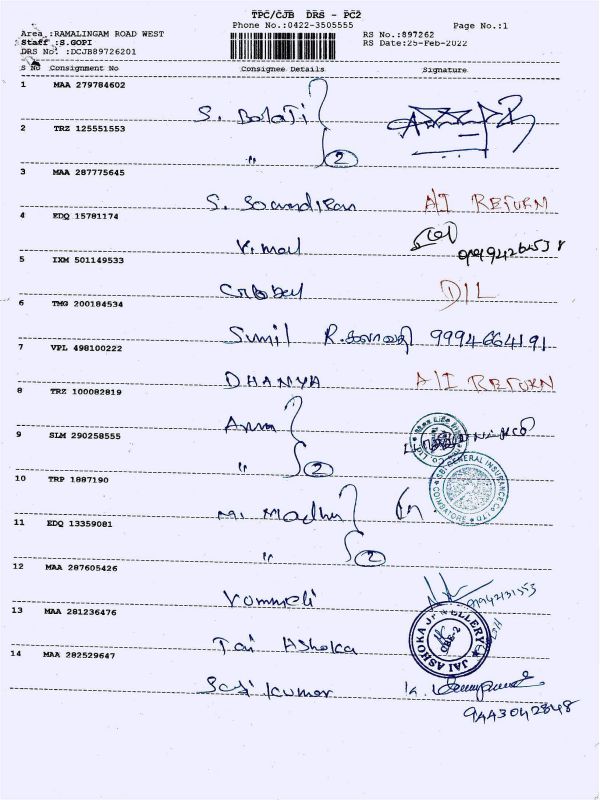 TPC/CJB DRS - PC2
Phone No.:0422-3505555 Page No.:1
Area :RAMALINGAM ROAD WEST RS No.:897262
Staff :S.GOPI RS Date:25-Feb-2022
DRS No. :DCJB89726201
S No Consignment No Consignee Details Signature
1 MAA 279784602
S. Balaji
2 TRZ 125551553
" 2
3 MAA 287775645
S. A/I RETURN
4 EDQ 15781174
Vimal
5 IXM 501149533
DIL
6 TMG 200184534
Sunil 9994664191
7 VPL 498100222
DHANYA A/I RETURN
8 TRZ 100082819
9 SLM 290258555
" 2
SBI GENERAL INSURANCE CO. LTD. COIMBATORE
10 TRP 1887190
M. Madhu
11 EDQ 13359081
" 2
12 MAA 287605426
13 MAA 281236476
Jai Ashoka
JAI ASHOKA JEWELLERY
14 MAA 282529647
Sasi kumar
9443042848